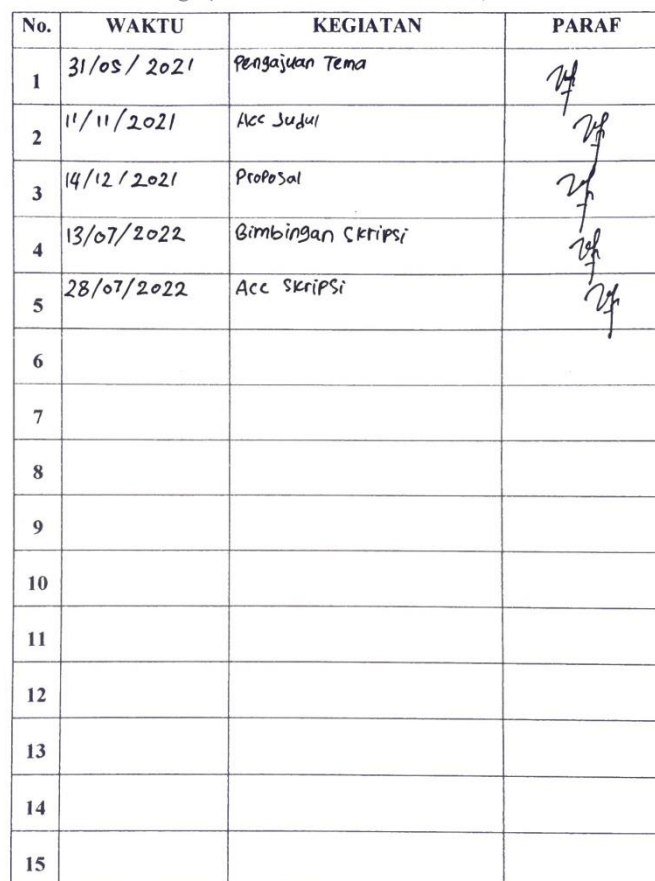 No. WAKTU KEGIATAN PARAF
1 31/05/2021 Pengajuan Tema
2 11/11/2021 Acc Judul
3 14/12/2021 Proposal
4 13/07/2022 Bimbingan Skripsi
5 28/07/2022 Acc Skripsi
6
7
8
9
10
11
12
13
14
15